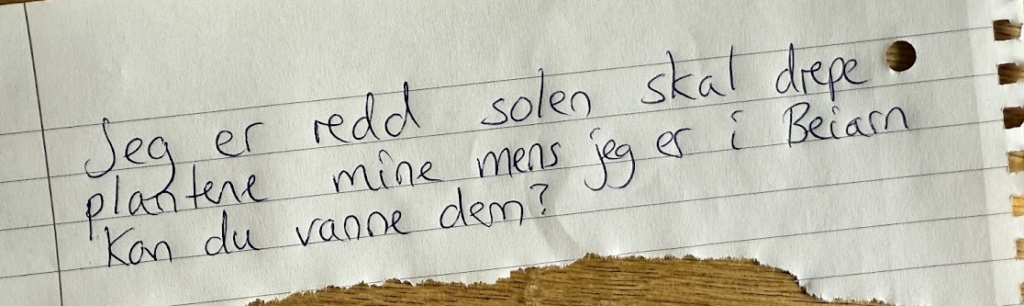 Jeg er redd solen skal drepe
plantene mine mens jeg er i Beiarn
Kan du vanne dem?